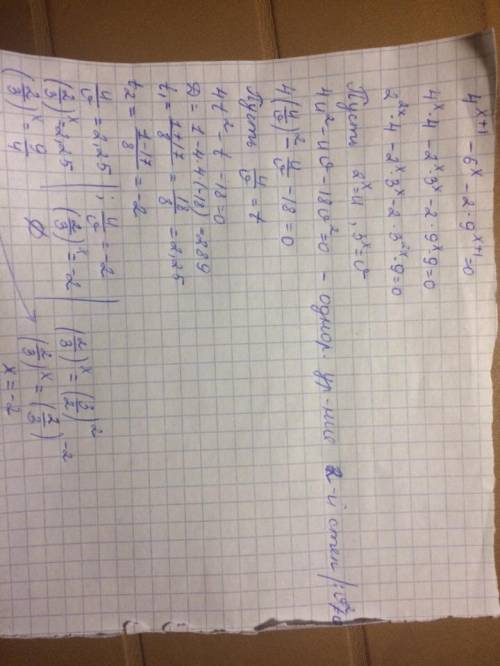 4^{x+1} - 6^x - 2 · 9^{x+1} = 0
4^x · 4 - 2^x · 3^x - 2 · 9^x · 9 = 0
2^{2x} · 4 - 2^x · 3^x - 2 · 3^{2x} · 9 = 0
Пусть 2^x = u, 3^x = v
4u² - uv - 18v² = 0 - однор. ур-ние 2-й степ | : v² ≠ 0
4(u/v)² - u/v - 18 = 0
Пусть u/v = t
4t² - t - 18 = 0
D = 1 - 4·4(-18) = 289
t₁ = (1+17)/8 = 18/8 = 2,25
t₂ = (1-17)/8 = -2
u/v = 2,25 | ; u/v = -2
(2/3)^x = 2,25 | (2/3)^x = -2 |
(2/3)^x = 9/4 ∅
(2/3)^x = (3/2)^2
(2/3)^x = (2/3)^{-2}
x = -2